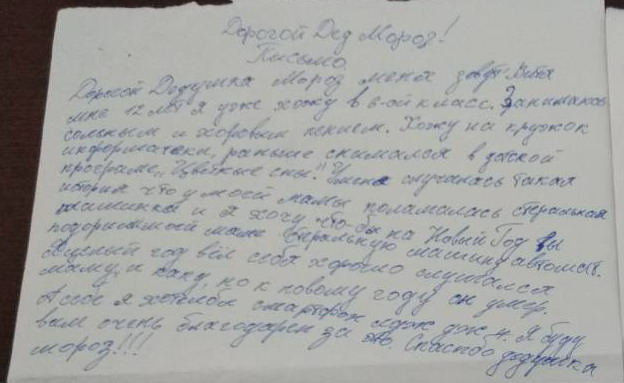 Дорогой Дед Мороз!
Письмо
Дорогой Дедушка Мороз меня зовут Витя
мне 12 лет я уже хожу в 6-ой класс. Занимаюсь
сольным и хоровым пением. Хожу на кружок
информатики, раньше снимался в детской
програме „Цветные сны". У меня случилась такая
история что у моей мамы поламалась стеральная
машинка и я хочу что-бы на Новый Год вы
подорили моей маме стеральную машину автомат.
год вёл себя хорошо слушался
маму, и папу, но к новому году он умер.
А себе я хотелбы смартфон лдж дж 4. Я буду
вам очень благодарен за это. Спасибо дедушка
мороз!!!